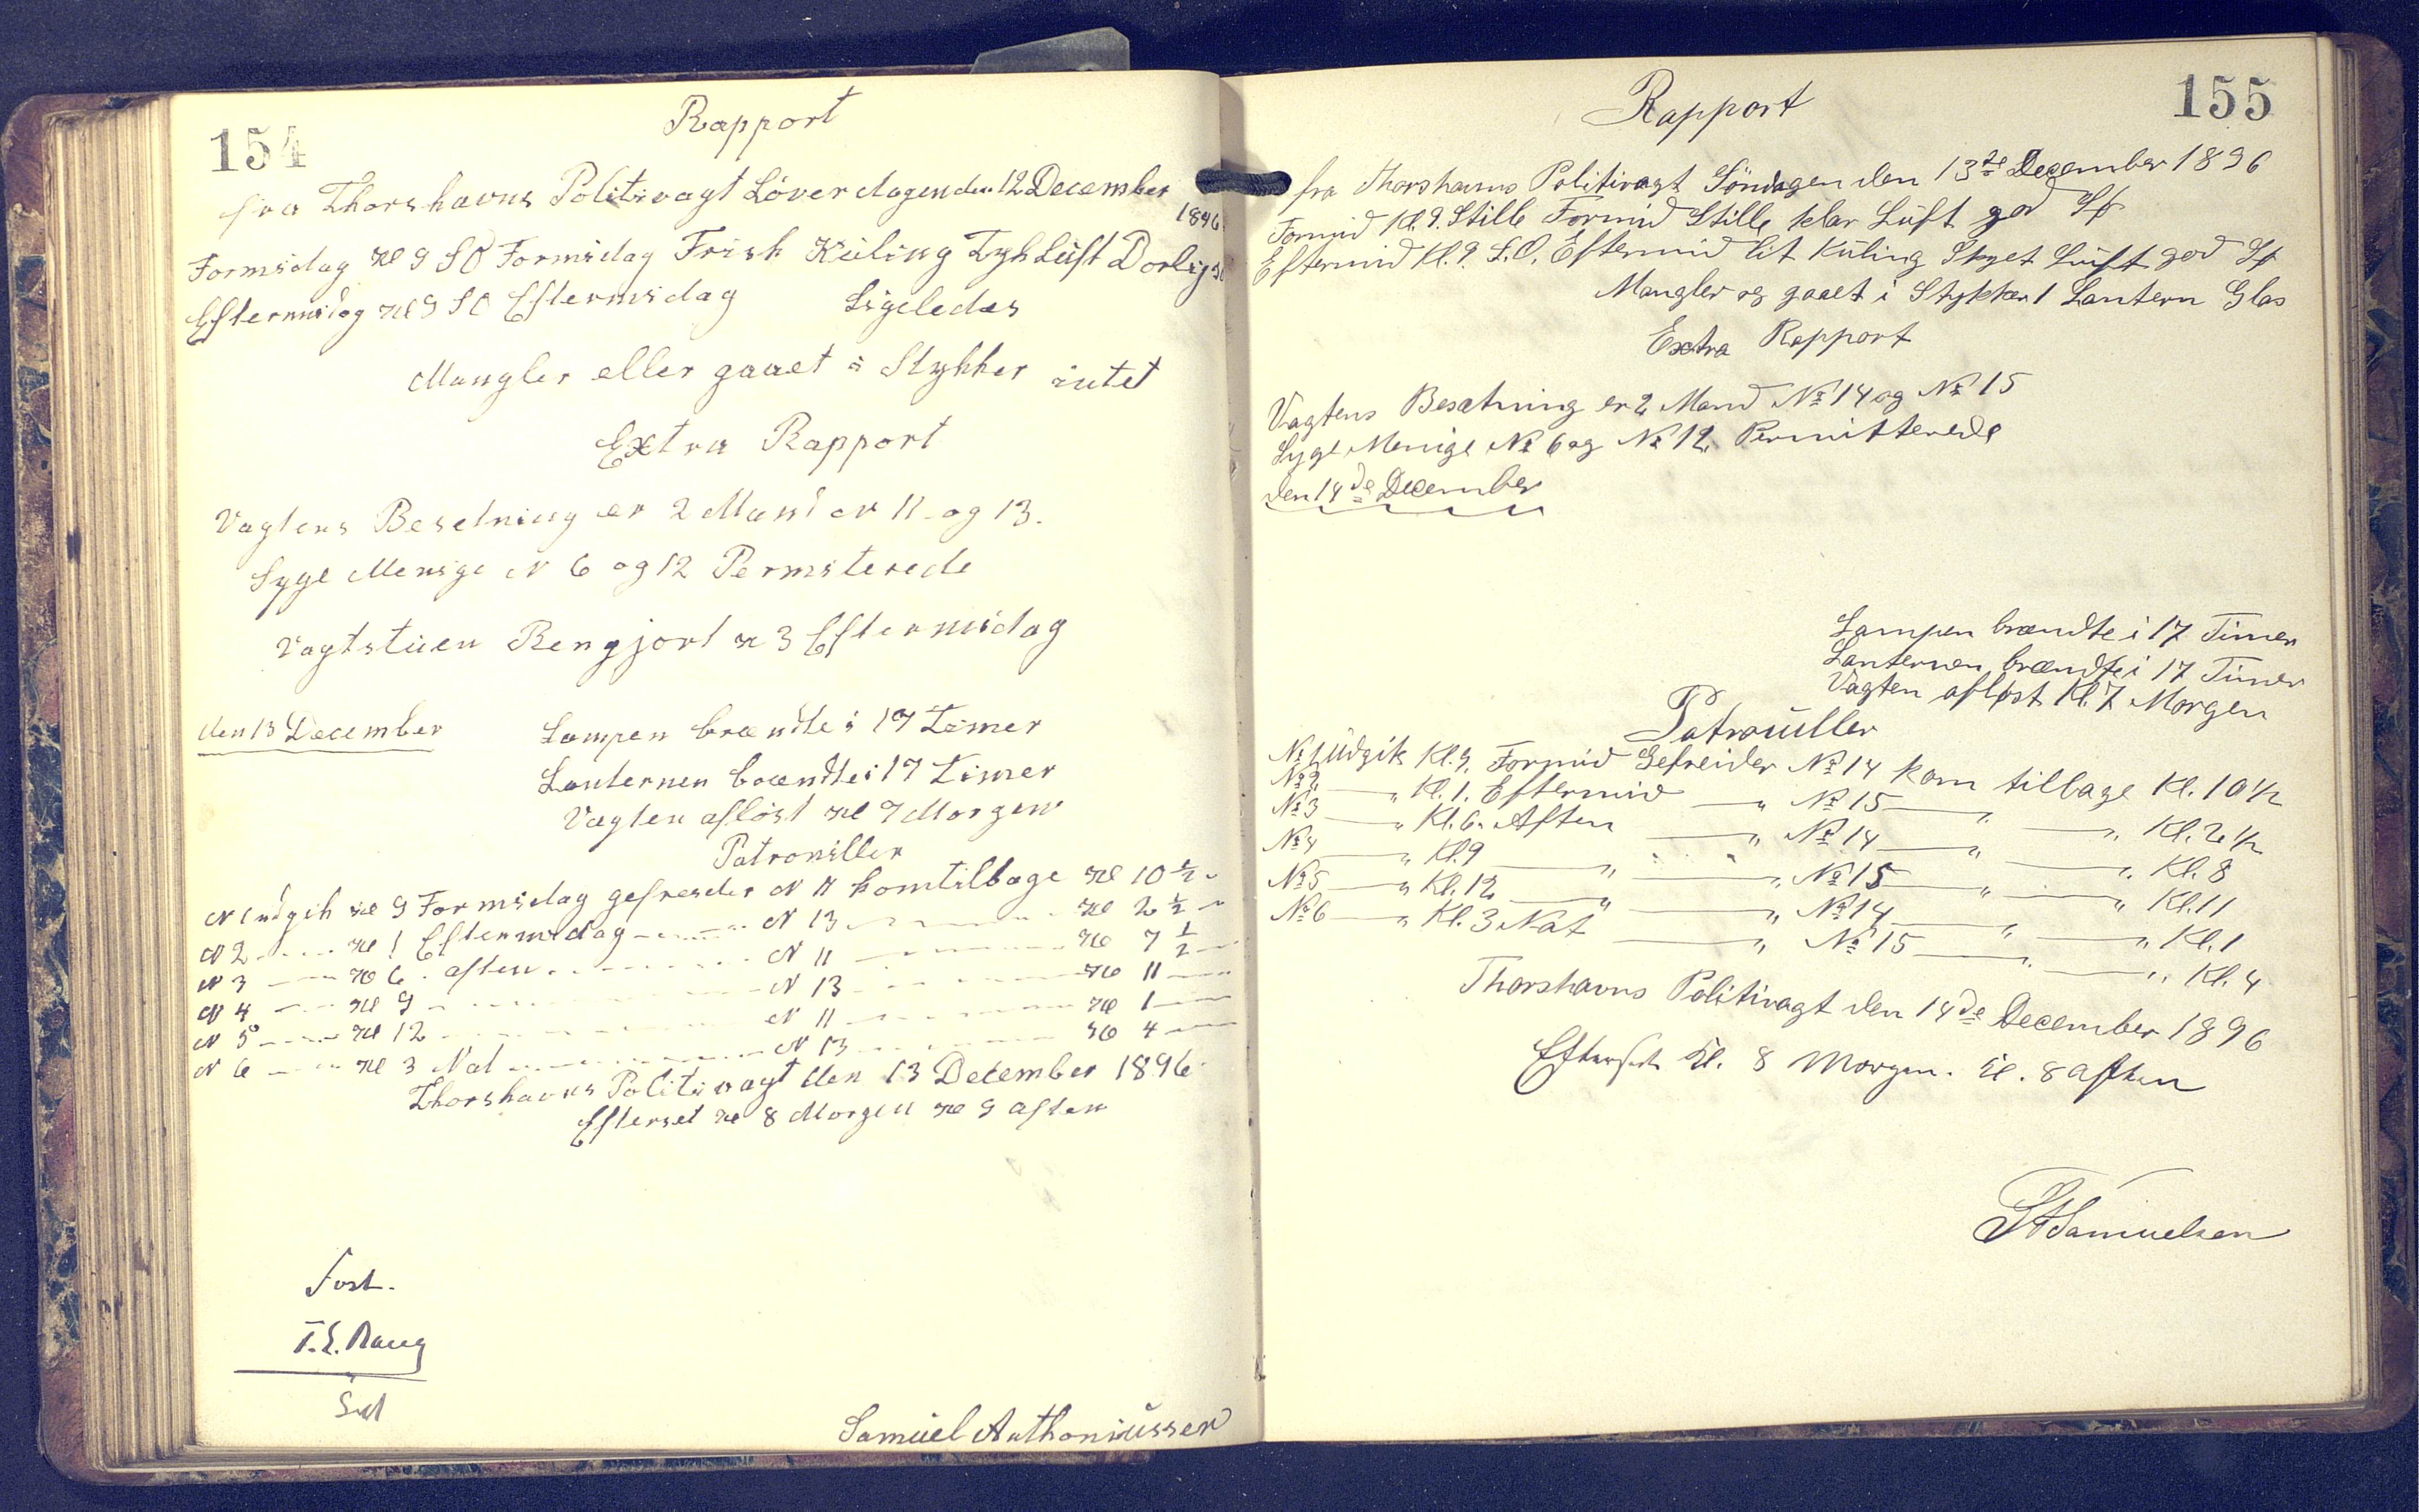 154
Rapport
fra Thorshavns Politivagt Löverdagen den 12 December
1896
Formidag Kl 9 SO Formidag Frisk Küling Tyk Lüft Dorlig
Eftermidag Kl 9 SO Eftermidag Ligeledes
Mangler eller gaaet i Stykker intet
Extra Rapport
Vagtens Besetning er 2 Mand N 11 og 13.
Syge Menige N 6 og 12 Permiterede
Vagtstüen Rengjort Kl 3 Eftermidag
den 13 December
Lampen brændte i 17 Timer
Lanternen brændte i 17 Timer
Vagten aflöst Kl 7 Morgen
Patroniller
N 1 udgik Kl 9 Formidag gefreider N 11 kom tilbage Kl 10 ½
N 2 Kl 1 Eftermidag N 13 Kl 2 ½
N 3 Kl 6 aften N 11 Kl 7 ½
N 4 Kl 9 N 13 Kl 11
N 5 Kl 12 N 11 Kl 1
N 6 Kl 3 Nat N 13 Kl 4
Thorshavns Politivagt den 13 December 1896
Efterset Kl 8 Morgen Kl 9 aften
Samüel Anthoniüssen
155
Rapport
fra Thorshavns Politivagt Söndagen den 13de December 1896
Formid Kl. 9. Stille Formid Stille klar Lüft god
Eftermid Kl. 9. S.O. Eftermid lit Küling Skyet Lüft god
Mangler og gaaet i Stykker 1 Lantern Glas
Extra Rapport
Vagtens Besætning er 2 Mand No 14 og No 15
Syge Menige No 6 og No 12. Permitterede
den 14de December
Lampen brændte i 17 Timer
Lanternen brændte i 17 Timer
Vagten afløst Kl. 7 Morgen
Patrouiller
No 1 Üdgik Kl. 9. Formid Gefreider No 14 kom tilbage Kl. 10 ½
No 2 — " Kl. 1. Eftermid — " No 15 — " — " Kl. 2 ½
No 3 — " Kl. 6. Aften — " No 14 — " — " Kl. 8
No 4 — " Kl. 9 — " — " No 15 — " — " Kl. 11
No 5 — " Kl. 12 — " — " No 14 — " — " Kl. 1
No 6 — " Kl. 3 Nat — " No 15 — " — " Kl. 4
Thorshavns Politivagt den 14de December 1896
Efterset Kl. 8 Morgen. Kl. 8 Aften
Samuelsen